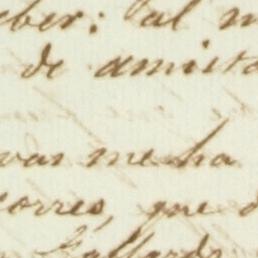 eber: Tal m
de amista
vas me ha
torres, que d
Gallardo